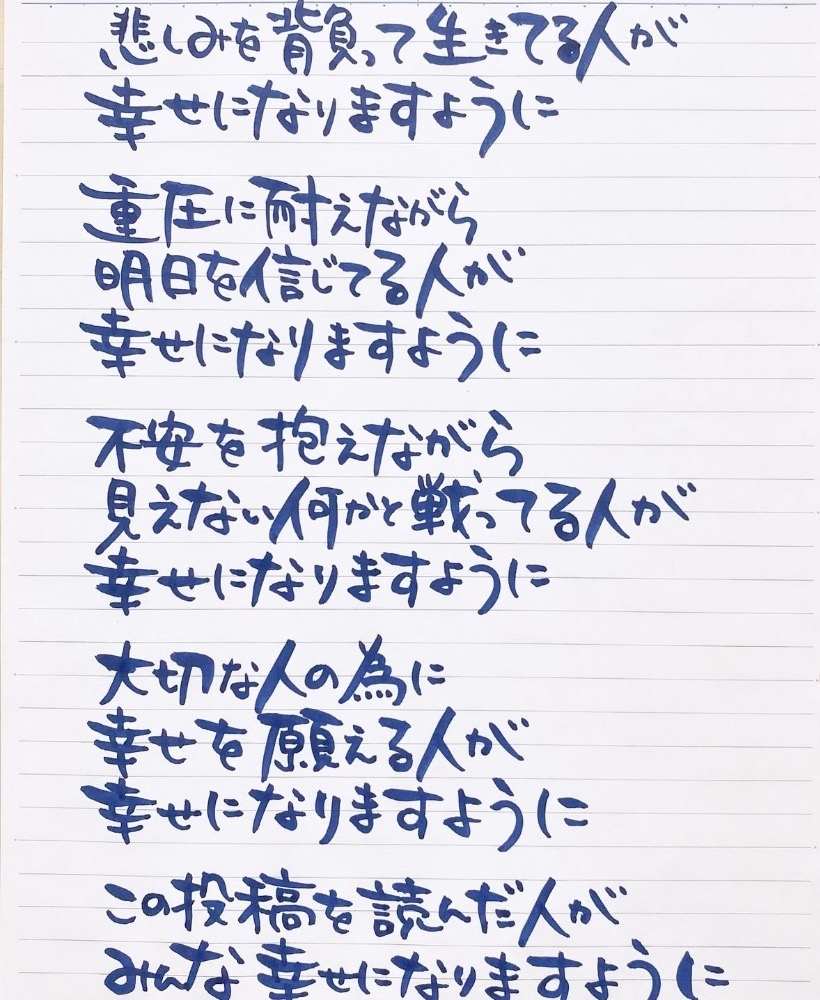 悲しみを背負って生きてる人が
幸せになりますように
重圧に耐えながら
明日を信じてる人が
幸せになりますように
不安を抱えながら
見えない何かと戦ってる人が
幸せになりますように
大切な人の為に
幸せを願える人が
幸せになりますように
この投稿を読んだ人が
みんな幸せになりますように